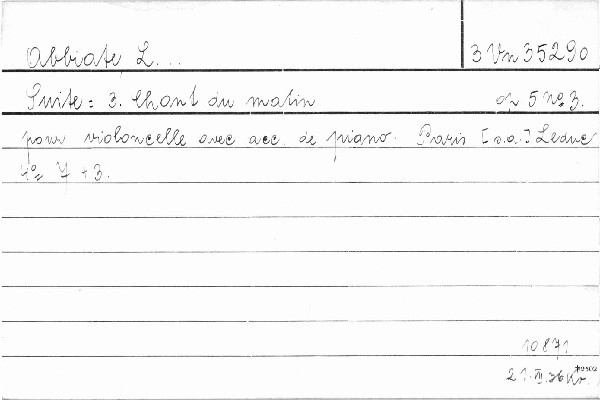 Abbiate L... 3 Vn 35290
Suite: 3. Chant du matin op 5 no 3.
pour violoncelle avec acc. de piano. Paris [s.a.] Leduc
4º 7 + 3.
10871
21.VII.36 Kv.